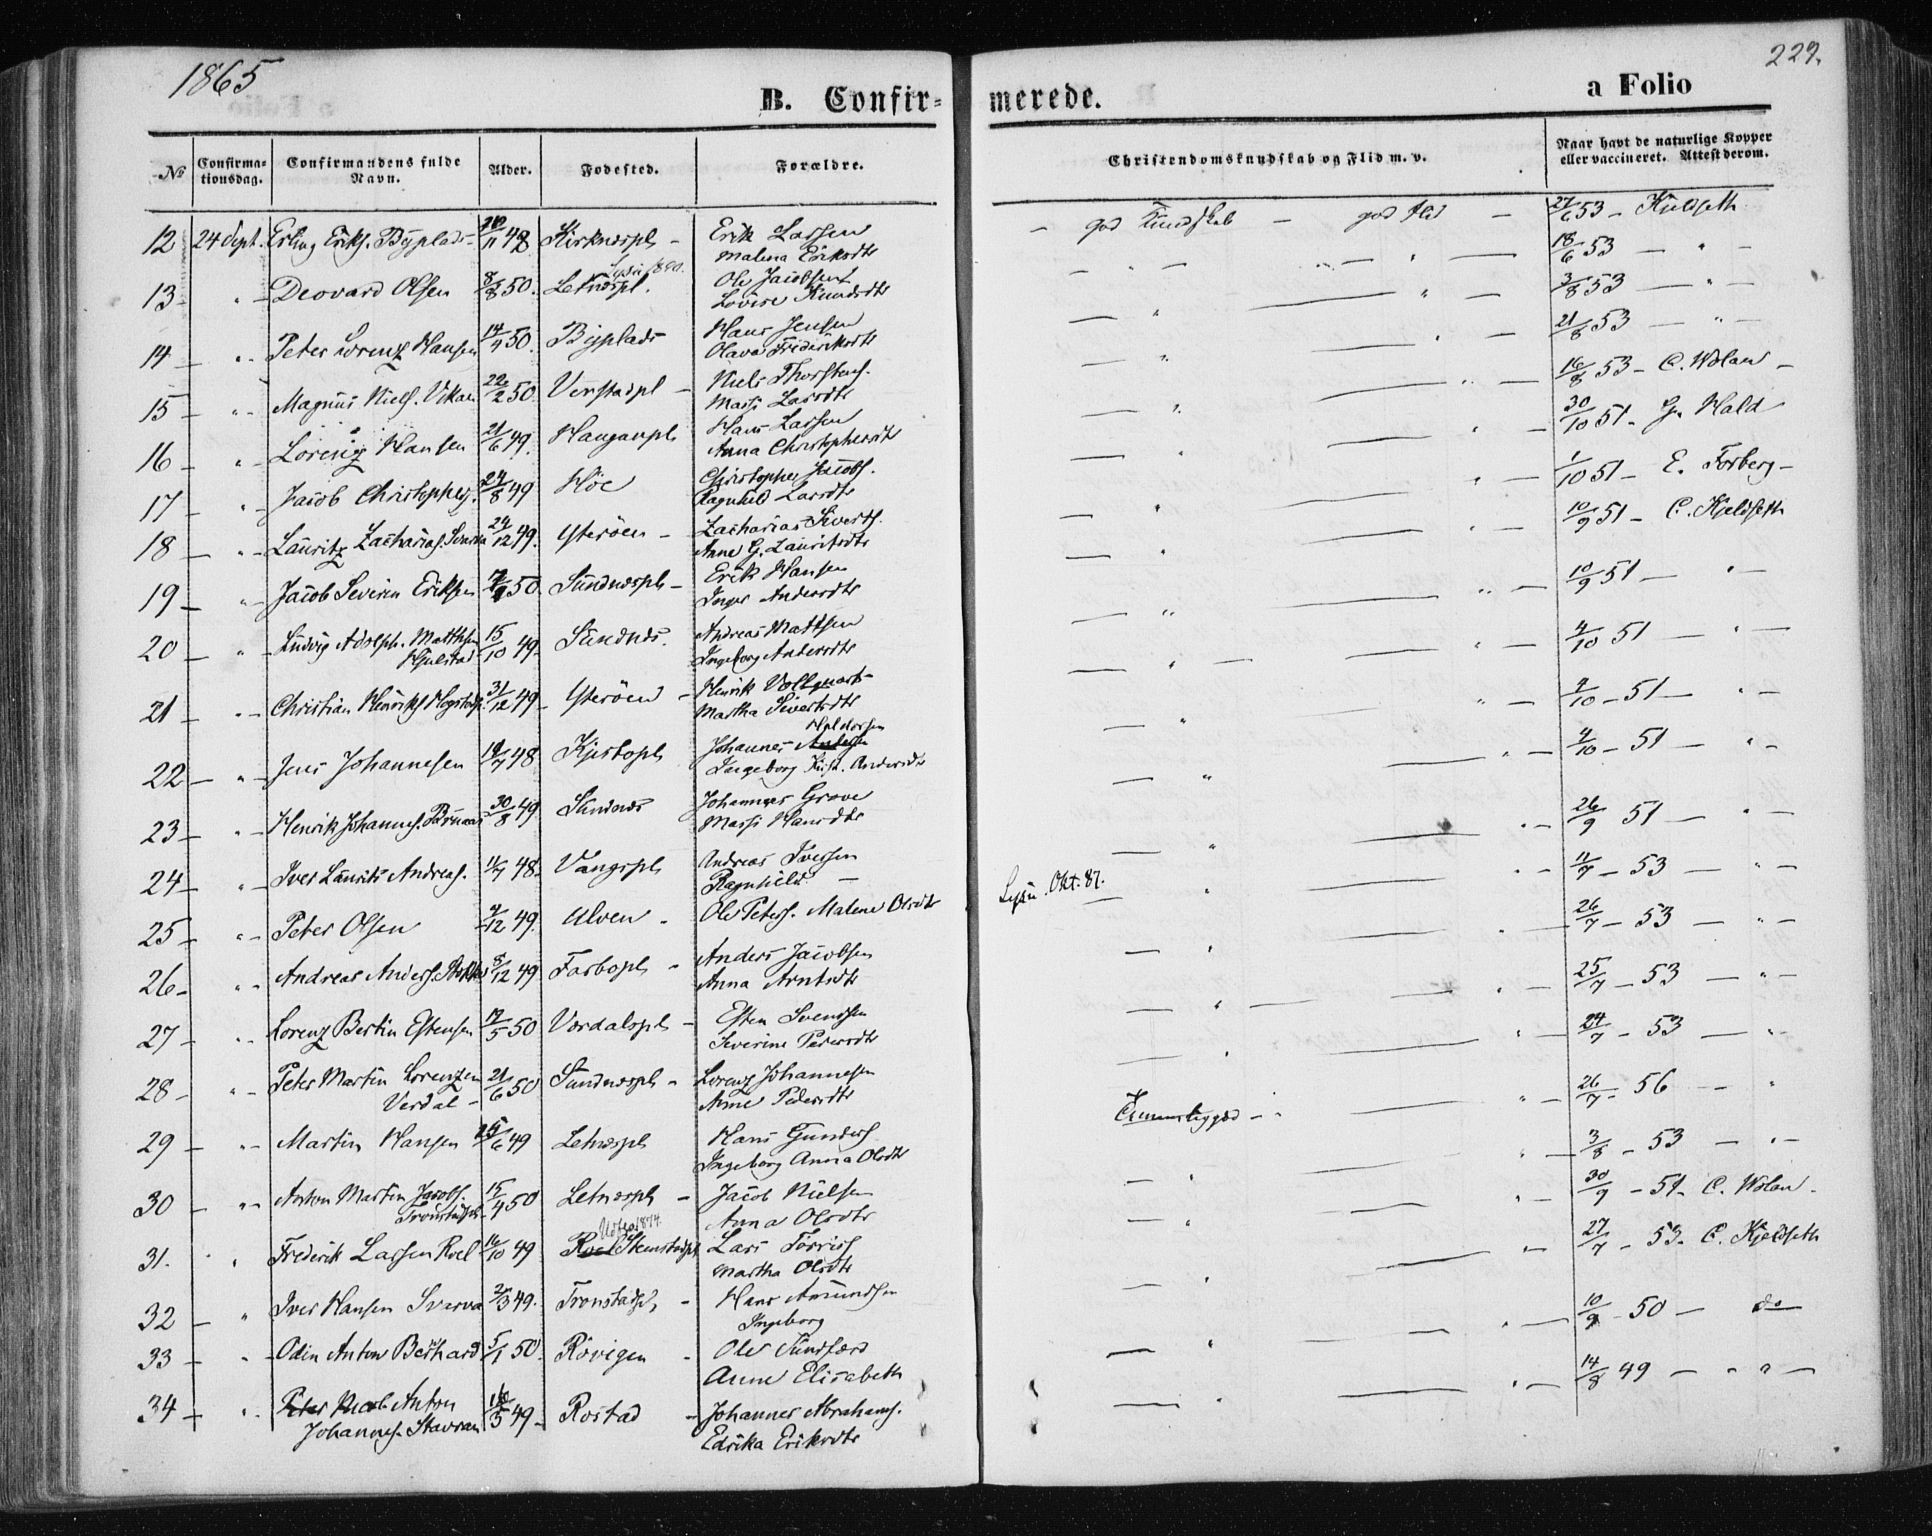 1865
229.
B. Confir-
merede.
a Folio
No
Confirma-
tionsdag.
Confirmandens fulde
Navn.
Alder.
Fodested.
Forældre.
Christendomskundskab og Flid m. v.
Naar havt de naturlige Kopper
eller vaccineret. Attest derom.
12 24 Sept. Erling Eriks. Byplads 11 48 Kirknespl - Erik Larsen
Malena Eriksdtr
- god Kundskab - god Flid - 27/6 53 - Kjeldseth
13 " Deovard Olsen 8/8 50. Letnæspl. Ole Jacobsen
Lovise Knudsdtr
" " 18/6 53 - " -
14 - " Peter Lorenz Hansen 14/4 50. Byplads Hans Jensen
Olava Frederiksdtr
" " 3/8 53 - " -
15 - " Magnus Niels. Vikan 22/2 50. Verstadpl - Niels Thorstens.
Massi Larsdtr
" " 21/8 53 - " -
16 - " Lorenz Hansen 21/6 49. Hauganpl Hans Larsen
Anna Christophersdtr
" " 16/8 53 - C. Wolan -
17 - " Jacob Christophers. 24/8 49 Höe Christopher Jacobs.
Ragnhild Larsdtr
" " 30/10 51 - G. Hald
18 - " Lauritz Zacharias. 24/12 49. Ytteröen - Zacharias Siverts.
Anne G. Lauritsdtr
" " 1/10 51 - E. Forberg -
19 - " Jacob Severin Eriksen 50. Sundnespl - Erik Hansen
Inger Andersdtr
" " 10/9 51 - C. Kjeldseth
20 - " Ludvig Adolph. Matthsen
Hjelstad 15/10 49. Sundnes. Andreas Mattsen
Ingeborg Andersdtr
" " 10/9 51 - " -
21 - " Christian Henriks. 31/12 49 - Ytteröen - Henrik Vollquarts
Martha Sivertsdtr
" " 4/10 51 - " -
22 - " Jens Johannesen 19/7 48 Kjistopl Johannes Andersen Haldorsen
Ingeborg Krist. Andersdtr
" " 4/10 - 51 - " -
23 - " Henrik Johannes. 30/8 49 Sundnes Johannes Grove
Massi Hansdtr
" " 4/10 - 51 - " -
24 - " Iver Laurits Andreas. 11/7 48. Vangspl Andreas Iversen
Ragnhild -
" " 26/9 51 - " -
25 - " Peter Olsen 4/12 49. Ulven - Ole Peters. Malene Olsdtr
Okt. 87. " " 11/7 - 53 - " -
26 - " Andreas Anders. 8/12 49 Farbopl - Anders Jacobsen
Anna Arntsdtr
" " 26/7 - 53 - " -
27 - " Lorenz Bertin Estensen 12/5 50 Vordalspl - Esten Svendsen
Severine Pedersdtr
" " 25/7 - 53 - " -
28 - " Peter Martin Lorenzen
Verdal - 21/6 50 Sundnespl - Lorenz Johannesen
Anne Pedersdtr
" " 24/7 - 53 - " -
29 - " Martin Hansen 6 49 Letnespl Hans Gunders.
Ingeborg Anna Olsdtr
" " 26/7 - 56 - "
30 - " Anton Martin Jacobs.
Tronstadpl. 15/4 50 Letnespl - Jacob Nielsen
Anna Olsdtr
" " 3/8 - 53 - " -
31. " Frederik Larsen Roel 16/10 49 Roel Stenstadpl Lars Torris.
Martha Olsdtr
" " 30/9 - 51 - C. Wolan -
32 - " Iver Hansen Svarva 2/3 49. Tronstadpl. - Hans Amundsen
Ingeborg
" " 27/7 - 53. C. Kjeldseth
33 - " Odin Anton Bernhard 5/1 50. Rövigen - Ole
Anne Elisabeth
" " 10/9 - 50 - do
34 - " Peter Anton
Johannes. Stavran 5 49 - Rostad - Johannes Abrahams.
Edrika Eriksdtr
" " 14/8 49 - " " -